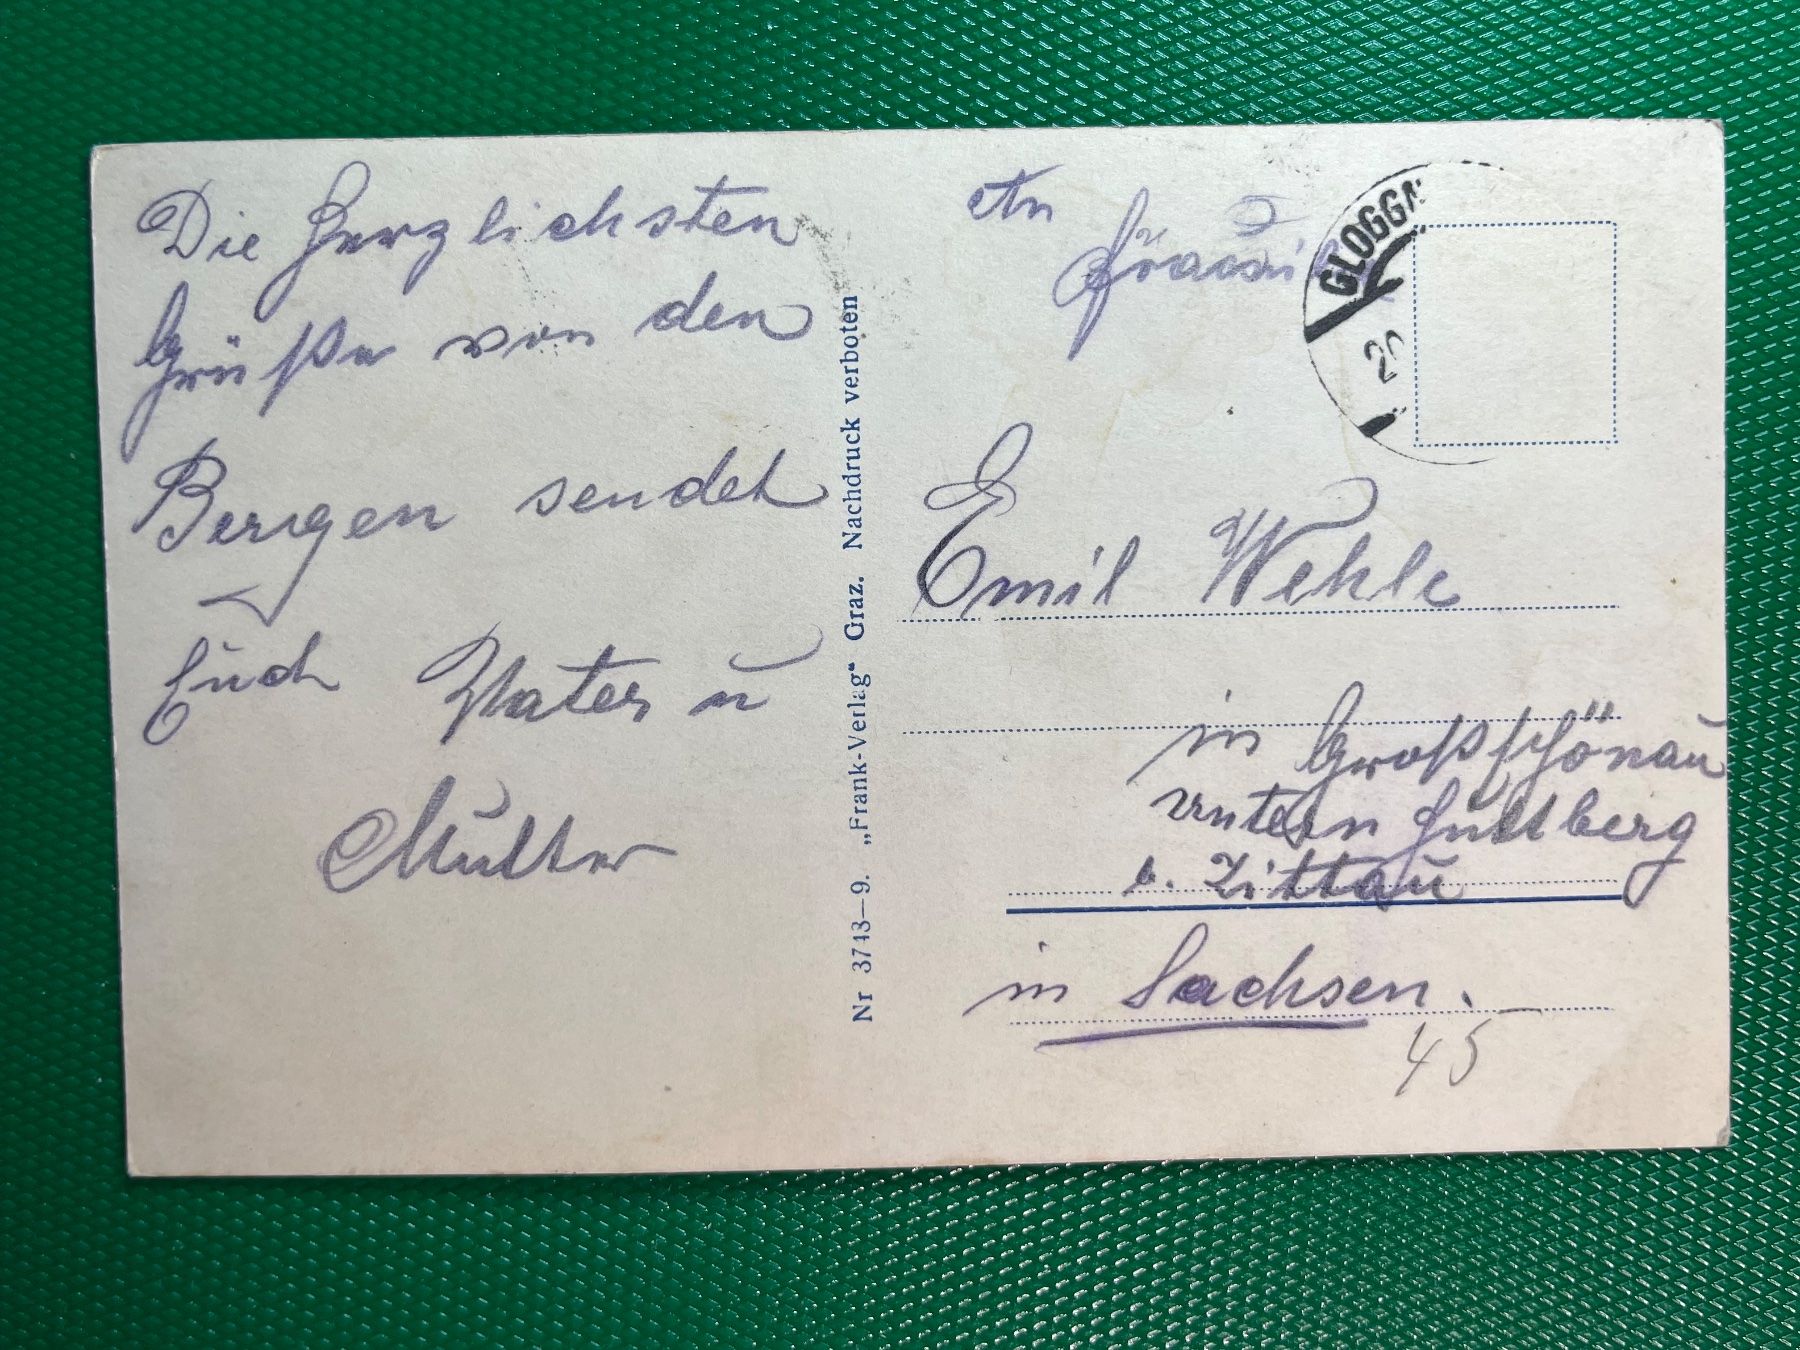 Die Herzlichsten
Grüße von den
Bergen sendet
Euch Vater u
Mutter
Nr 3743—9. „Frank-Verlag“ Graz. Nachdruck verboten
An
GLOGGN
20
Emil Wehle
in Großschönau
untern Hutberg
b. Zittau
in Sachsen.
45